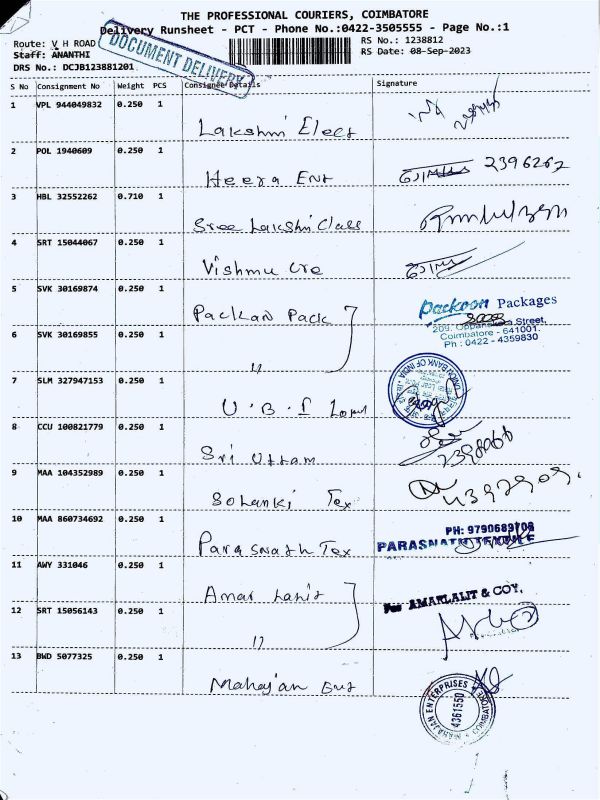 THE PROFESSIONAL COURIERS, COIMBATORE
Delivery Runsheet - PCT - Phone No.:0422-3505555 - Page No.:1
Route: V H ROAD RS No.: 1238812
Staff: ANANTHI RS Date: 08-Sep-2023
DRS No.: DCJB123881201
DOCUMENT DELIVERY
S No Consignment No Weight PCS Consignee Details Signature
1 VPL 944049832 0.250 1
Lakshmi Elect
2 POL 1940609 0.250 1
Heera Ent 2396262
3 HBL 32552262 0.710 1
Sree Lakshmi Class
4 SRT 15044067 0.250 1
Vishmu
5 SVK 30169874 0.250 1
Packan Pack
Packoon Packages
Street,
Coimbatore - 641001.
Ph : 0422 - 4359830
6 SVK 30169855 0.250 1
"
7 SLM 327947153 0.250 1
U.B.I
UNION BANK OF INDIA
8 CCU 100821779 0.250 1
Sri Uttam
9 MAA 104352989 0.250 1
Solanki Tex
10 MAA 860734692 0.250 1
Parasnath Tex
PH: 9790689708
PARASNATH TEXTILE
11 AWY 331046 0.250 1
Amar Lalit
For AMARLALIT & COY.
12 SRT 15056143 0.250 1
"
13 BWD 5077325 0.250 1
Mahajan Ent
MAHAJAN ENTERPRISES
4361550
COIMBATORE